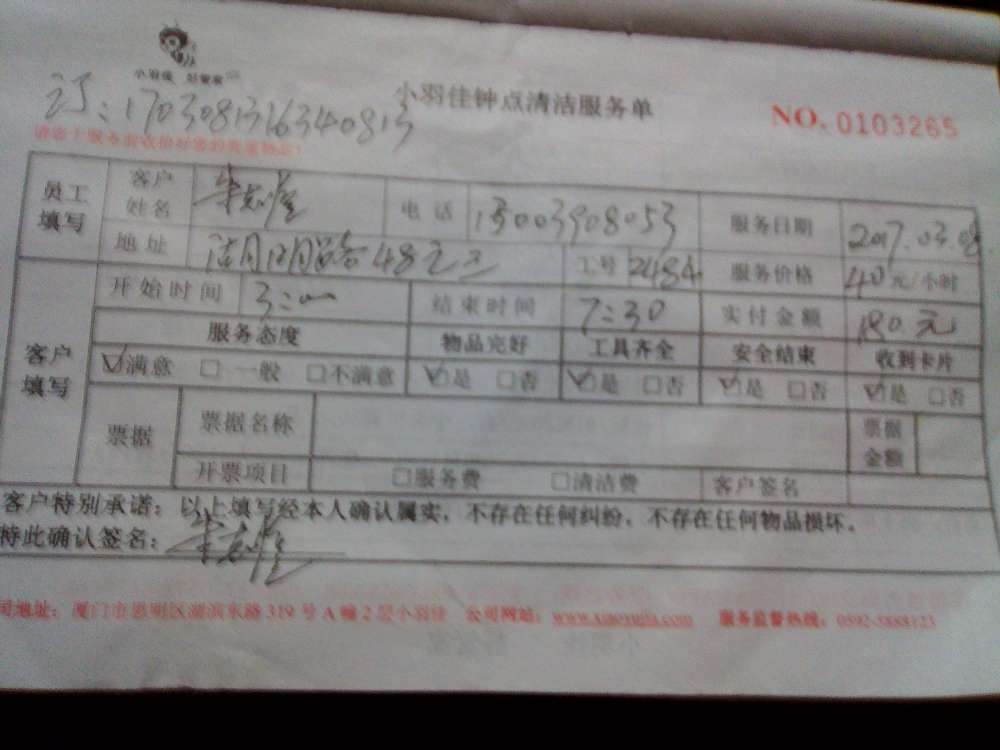 小羽佳
小羽佳钟点清洁服务单
NO. 0103265
订:1703081316340813
员工填写
客户姓名 电话 13003908053 服务日期 2017.03.08
地址 48 工号 2484 服务价格 40元/小时
客户填写
开始时间 3:00 结束时间 7:30 实付金额 180元
服务态度 物品完好 工具齐全 安全结束 收到卡片
☑满意 □一般 □不满意 ☑是 □否 ☑是 □否 ☑是 □否 ☑是 □否
票据 票据名称 票据金额
开票项目 □服务费 □清洁费 客户签名
客户特别承诺:以上填写经本人确认属实,不存在任何纠纷,不存在任何物品损坏。
特此确认签名:
司地址:厦门市思明区湖滨东路319号A幢2层小羽佳 公司网站:www.xiaoyujia.com 服务监督热线:0592-5888123